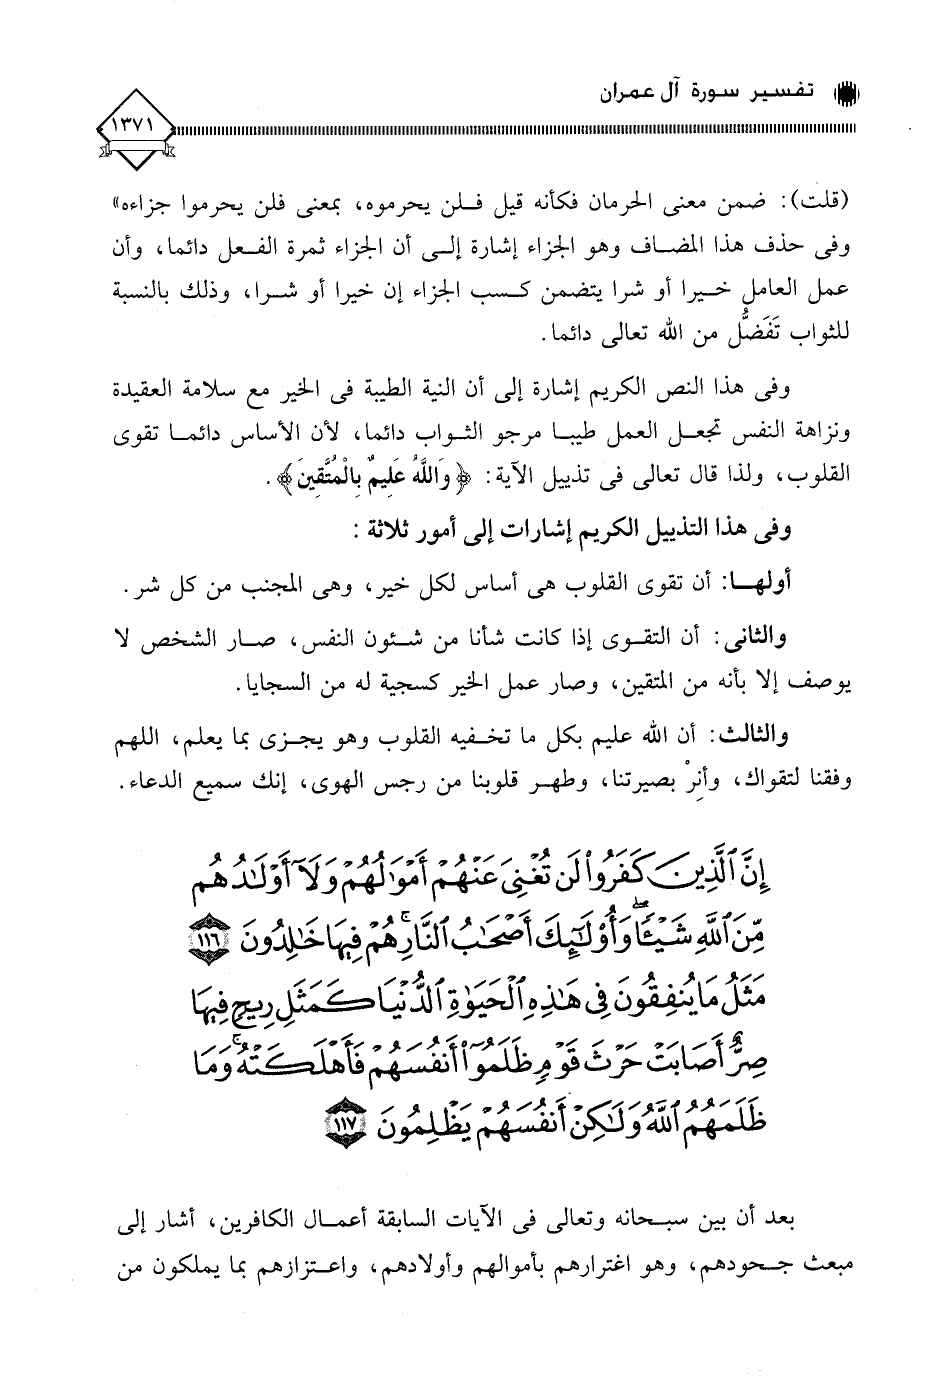 تفسير سورة آل عمران
١٣٧١
(قلت): ضمن معنى الحرمان فكأنه قيل فلن يحرموه، بمعنى فلن يحرموا جزاءه»
وفى حذف هذا المضاف وهو الجزاء إشارة إلى أن الجزاء ثمرة الفعل دائما، وأن
عمل العامل خيرا أو شرا يتضمن كسب الجزاء إن خيرا أو شرا، وذلك بالنسبة
للثواب تَفَضُّل من الله تعالى دائما.
وفى هذا النص الكريم إشارة إلى أن النية الطيبة فى الخير مع سلامة العقيدة
ونزاهة النفس تجعل العمل طيبا مرجو الثواب دائما، لأن الأساس دائما تقوى
القلوب، ولذا قال تعالى فى تذييل الآية: ﴿وَاللَّهُ عَلِيمٌ بِالْمُتَّقِينَ﴾.
وفى هذا التذييل الكريم إشارات إلى أمور ثلاثة :
أولها: أن تقوى القلوب هى أساس لكل خير، وهى المجنب من كل شر.
والثانى: أن التقوى إذا كانت شأنا من شئون النفس، صار الشخص لا
يوصف إلا بأنه من المتقين، وصار عمل الخير كسجية له من السجايا.
والثالث: أن الله عليم بكل ما تخفيه القلوب وهو يجزى بما يعلم، اللهم
وفقنا لتقواك، وأنِرْ بصيرتنا، وطهر قلوبنا من رجس الهوى، إنك سميع الدعاء.
إِنَّ ٱلَّذِينَ كَفَرُوا۟ لَن تُغْنِىَ عَنْهُمْ أَمْوَٰلُهُمْ وَلَآ أَوْلَـٰدُهُم
مِّنَ ٱللَّهِ شَيْـًٔا ۖ وَأُو۟لَـٰٓئِكَ أَصْحَـٰبُ ٱلنَّارِ ۚ هُمْ فِيهَا خَـٰلِدُونَ ١١٦
مَثَلُ مَا يُنفِقُونَ فِى هَـٰذِهِ ٱلْحَيَوٰةِ ٱلدُّنْيَا كَمَثَلِ رِيحٍ فِيهَا
صِرٌّ أَصَابَتْ حَرْثَ قَوْمٍ ظَلَمُوٓا۟ أَنفُسَهُمْ فَأَهْلَكَتْهُ ۚ وَمَا
ظَلَمَهُمُ ٱللَّهُ وَلَـٰكِنْ أَنفُسَهُمْ يَظْلِمُونَ ١١٧
بعد أن بين سبحانه وتعالى فى الآيات السابقة أعمال الكافرين، أشار إلى
مبعث جحودهم، وهو اغترارهم بأموالهم وأولادهم، واعتزازهم بما يملكون من